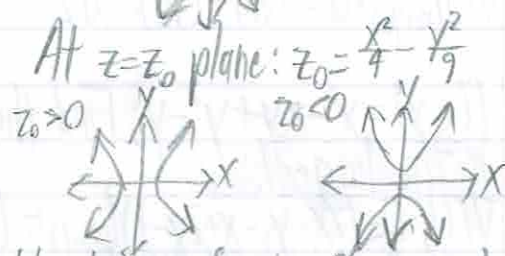 At z=z₀ plane: z₀ = x²/4 - y²/9
z₀>0 y z₀<0 y
x x